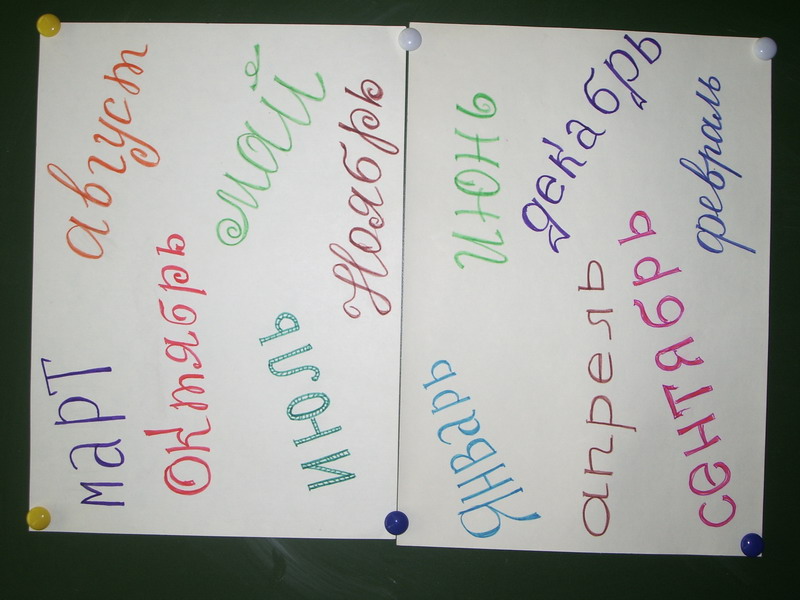 март
август
Октябрь
май
июль
Ноябрь
Январь
июнь
декабрь
апрель
сентябрь
февраль